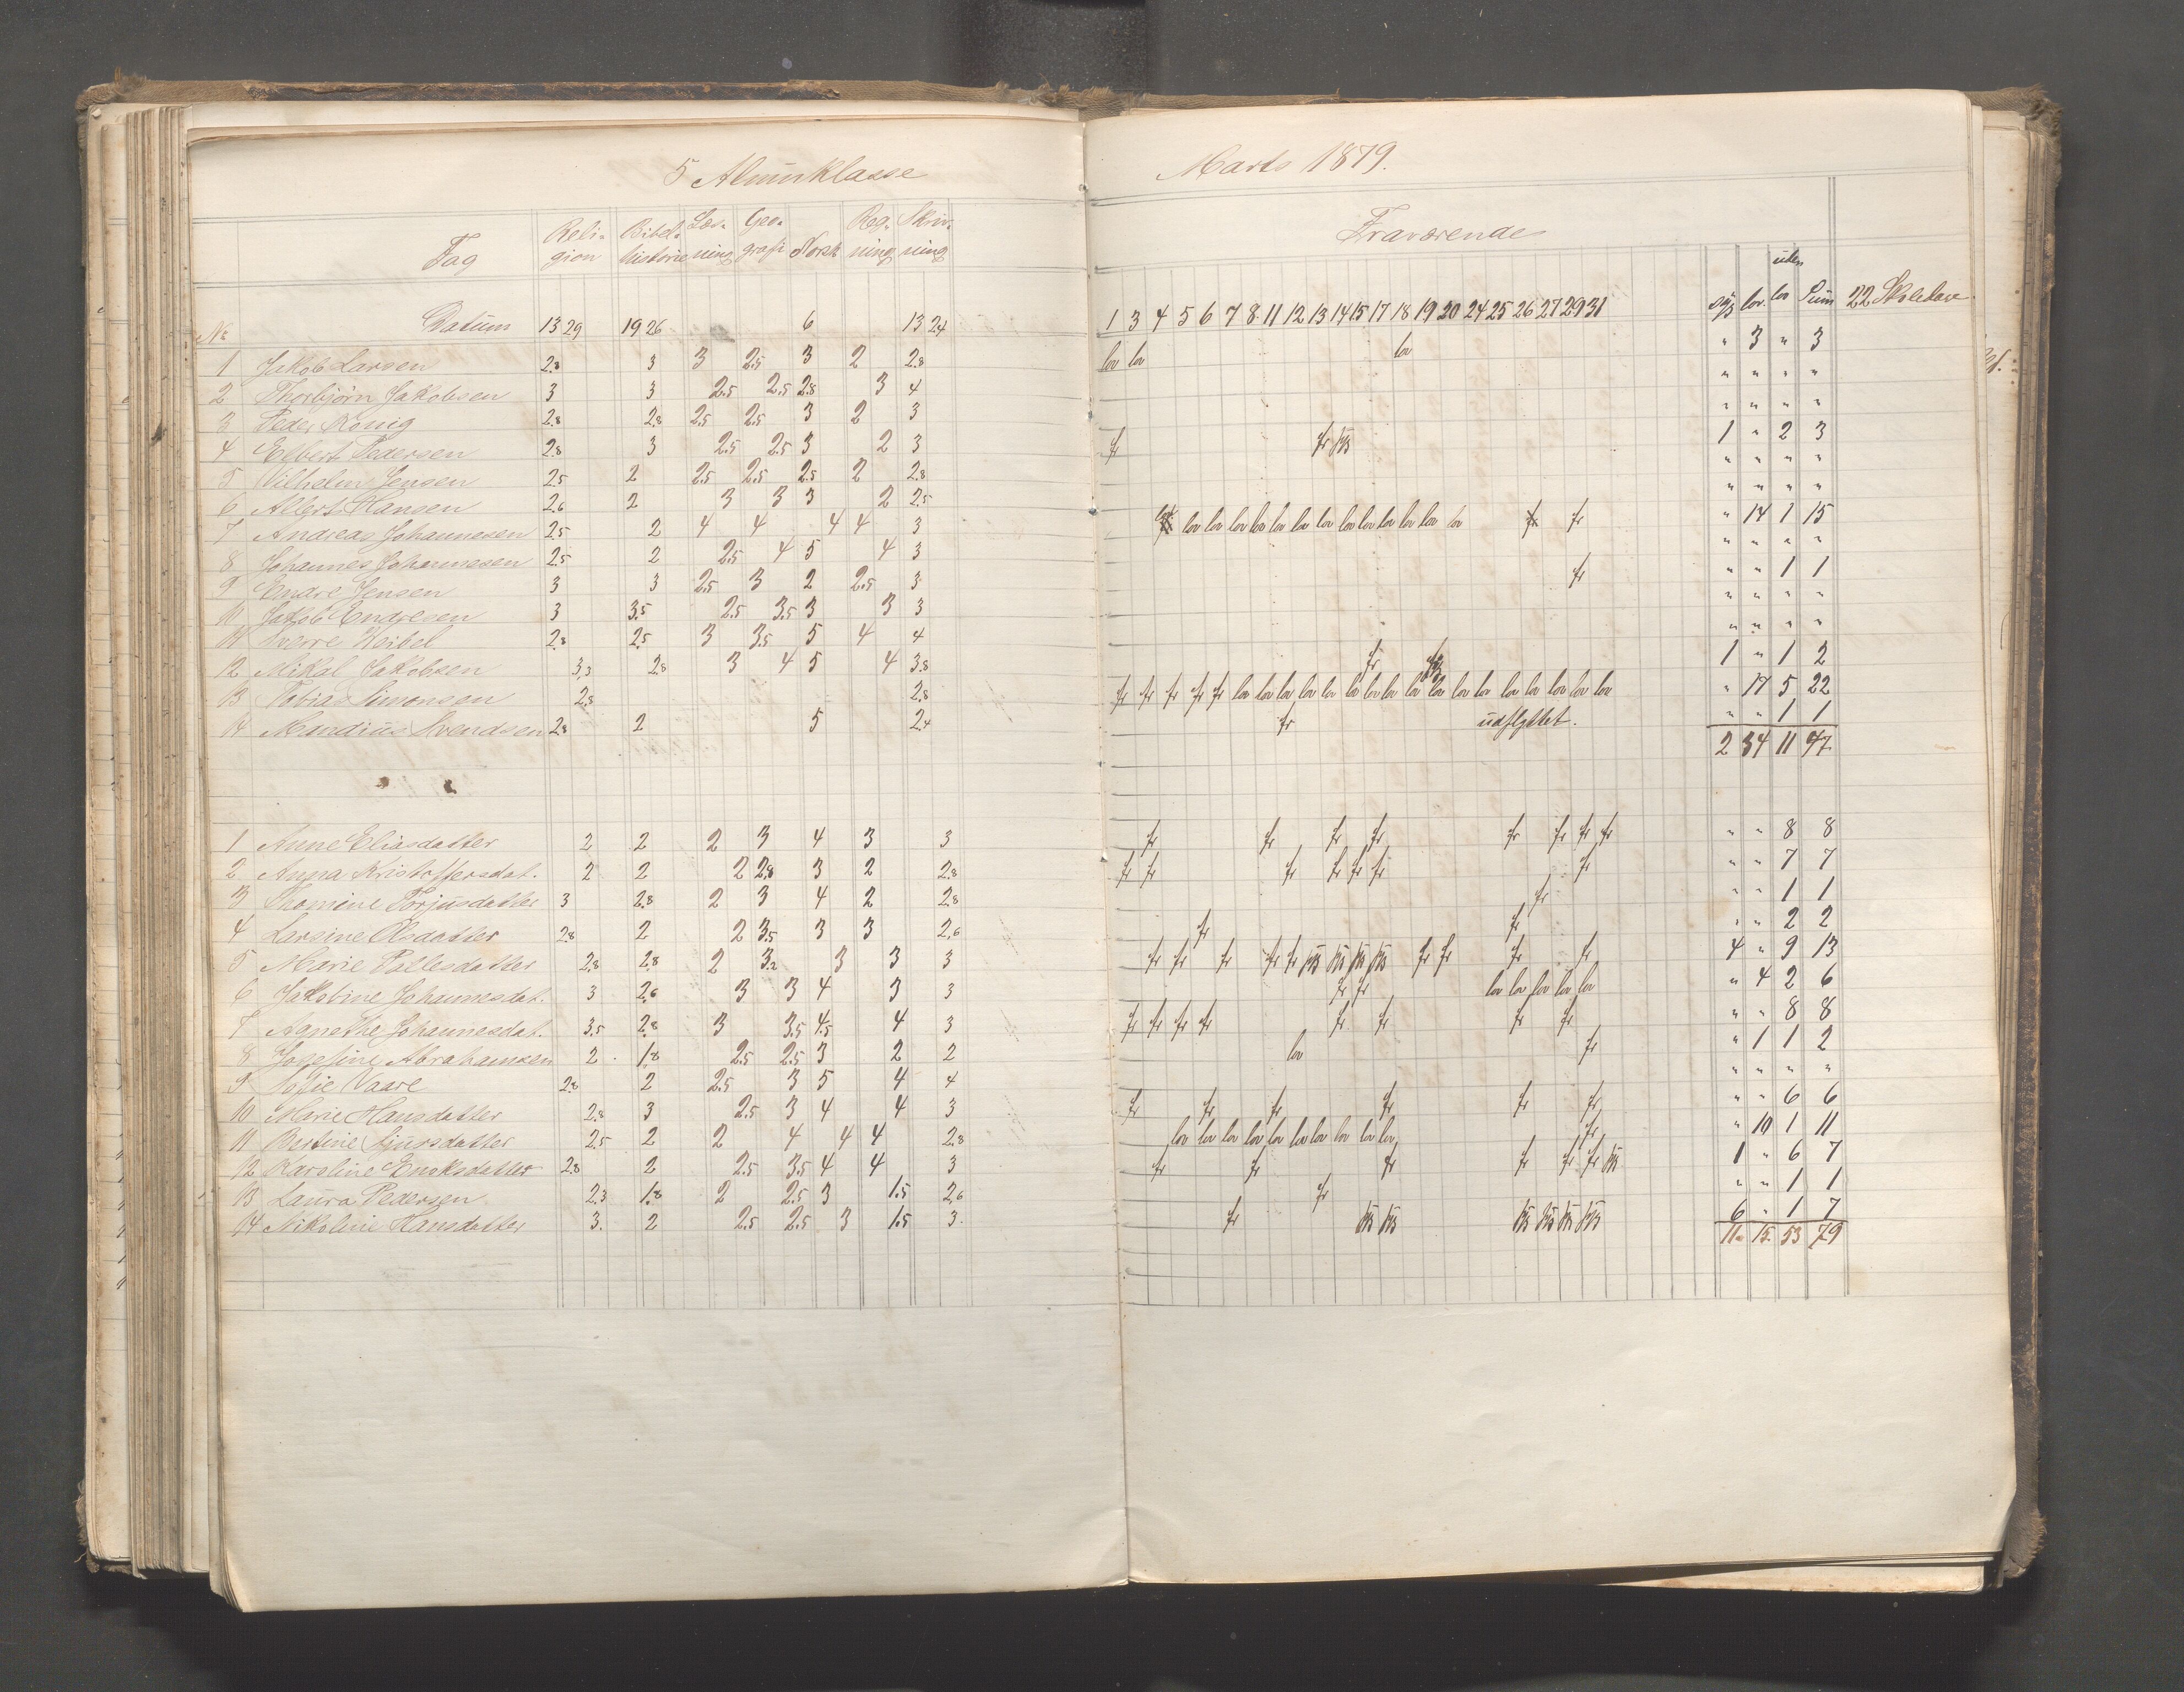 5 Almuklasse
Fag Reli- gion Bibel- historie Læs- ning Geo- grafi Norsk Reg- ning Skriv- ning
No Datum 13 29 19 26 6 13 24
1 Jakob Larsen 2.8 3 3 2.5 3 2 2.8
2 Thorbjörn Jakobsen 3 3 2.5 2.5 2.8 3 4
3 Peder König 2.8 2.8 2.5 2.5 3 2 3
4 Elbert Pedersen 2.8 3 2.5 2.5 3 2 3
5 Vilhelm Jensen 2.5 2 2.5 2.5 2.5 2 2.8
6 Albert Hansen 2.6 2 3 3 3 2 2.5
7 Andreas Johannesen 2.5 2 4 4 4 4 3
8 Johannes Johannesen 2.5 2 2.5 4 5 4 3
9 Endre Jensen 3 3 2.5 3 2 2.5 3
10 Jakob Endresen 3 3.5 2.5 3.5 3 3 3
11 Sverre Weibel 2.8 2.5 3 3.5 5 4 4
12 Mikal Jakobsen 3.3 2.8 3 4 5 4 3.8
13 Tobias Simonsen 2.8 2.8
14 Mandius Svendsen 2.8 2 5 2.4
1 Anne Eliasdatter 2 2 2 3 4 3 3
2 Anna Kristoffersdat. 2 2 2 2.8 3 2 2.8
3 Thomine Torjusdatter 3 2.8 2 3 4 2 2.8
4 Larsine Olsdatter 2.8 2 2 3.5 3 3 2.6
5 Marie Pallesdatter 2.8 2.8 2 3.2 3 3 3
6 Jakobine Johannesdat. 3 2.6 3 3 4 3 3
7 Agnethe Johannesdat. 3.5 2.8 3 3.5 4.5 4 3
8 Josefine Abrahamsen 2 1.8 2.5 2.5 3 2 2
9 Sofie Vaare 2.8 2 2.5 3 5 4 4
10 Marie Hansdatter 2.8 3 2.5 3 4 4 3
11 Bertine Sjursdatter 2.5 2 2 4 4 4 2.8
12 Karoline Eriksdatter 2.8 2 2.5 3.5 4 4 3
13 Laura Pedersen 2.3 1.8 2 2.5 3 1.5 2.6
14 Nikoline Hansdatter 3. 2 2.5 2.5 3 1.5 3.
Marts 1879.
Fraværende
1 3 4 5 6 7 8 11 12 13 14 15 17 18 19 20 24 25 26 27 29 31 syg lov uden lov Sum 22 Skoledage.
lov lov lov " 3 " 3
" " " "
" " " "
fr fr syg 1 " 2 3
" " " "
" " " "
lov lov lov lov lov lov lov lov lov lov lov lov lov fr " 14 1 15
" " " "
fr " " 1 1
" " " "
" " " "
fr syg 1 " 1 2
fr fr fr fr fr lov lov lov lov lov lov lov lov lov lov lov lov lov lov lov lov lov " 17 5 22
fr udflyttet. " " 1 1
2 34 11 47.
fr fr fr fr fr fr fr fr " " 8 8
fr fr fr fr fr fr fr " " 7 7
fr " " 1 1
fr fr " " 2 2
fr fr fr fr fr syg syg syg syg fr fr fr fr 4 " 9 13
fr fr lov lov lov lov lov " 4 2 6
fr fr fr fr fr fr fr fr " " 8 8
lov fr " 1 1 2
" " " "
fr fr fr fr fr fr " " 6 6
lov lov lov lov lov lov lov lov lov lov fr " 10 1 11
fr fr fr fr fr fr syg 1 " 6 7
fr " " 1 1
fr syg syg syg syg syg syg 6 " 1 7
11. 15. 53 79